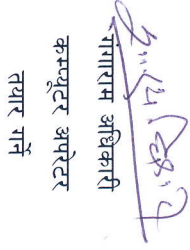 गंगाराम अधिकारी
कम्प्युटर अपरेटर
तयार गर्ने